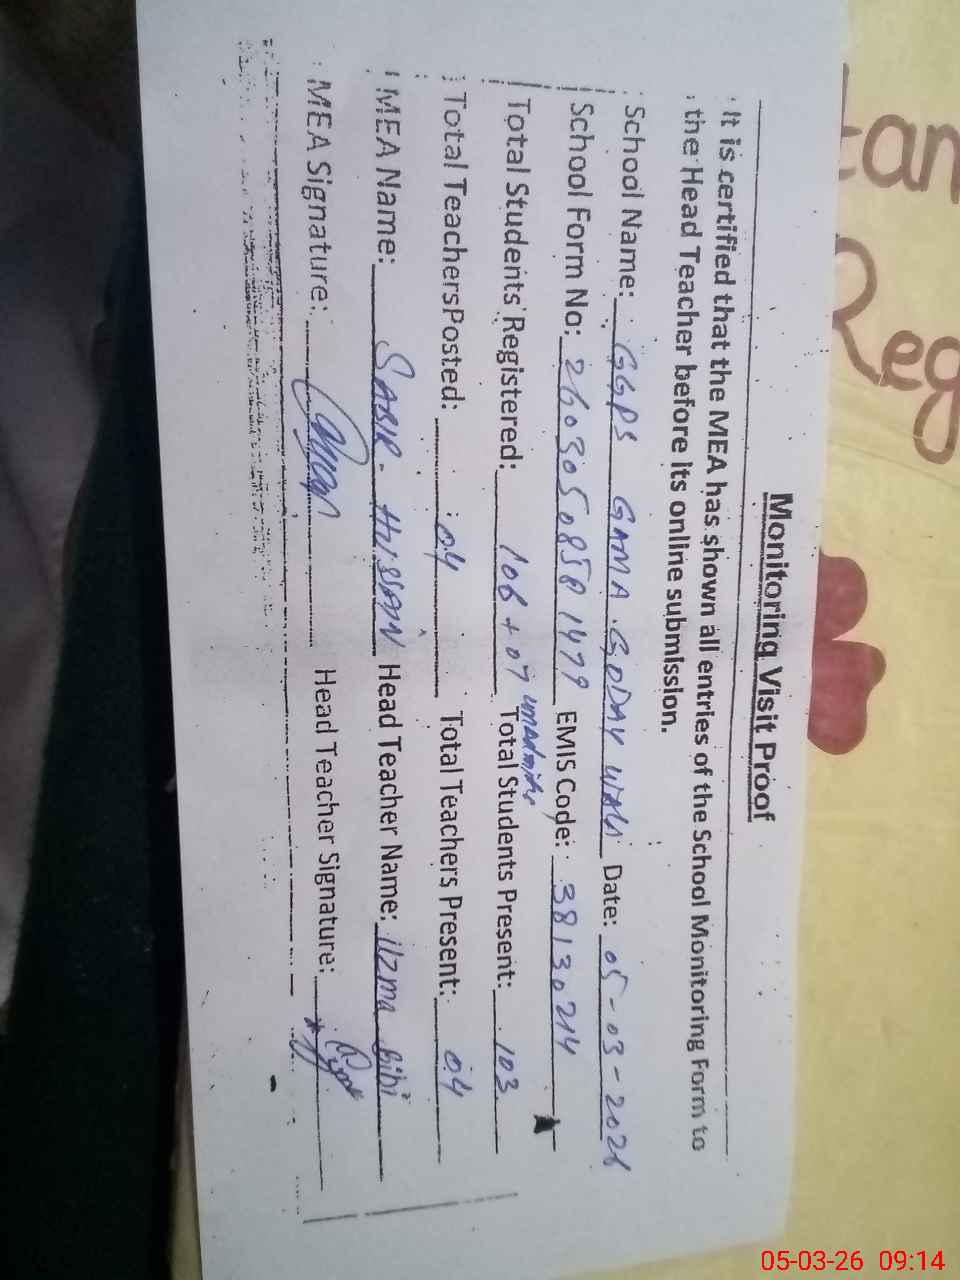 Monitoring Visit Proof
It is certified that the MEA has shown all entries of the School Monitoring Form to
the Head Teacher before its online submission.
School Name: GGPS GAMA GODAY WALI Date: 05-03-2026
School Form No: EMIS Code: 38130214
Total Students Registered: 106 + 07 unadmitted Total Students Present: 103
Total Teachers Posted: 04 Total Teachers Present: 04
MEA Name: SABIR HUSSAIN Head Teacher Name: Uzma Bibi
MEA Signature: Head Teacher Signature:
tan
Reg
05-03-26 09:14